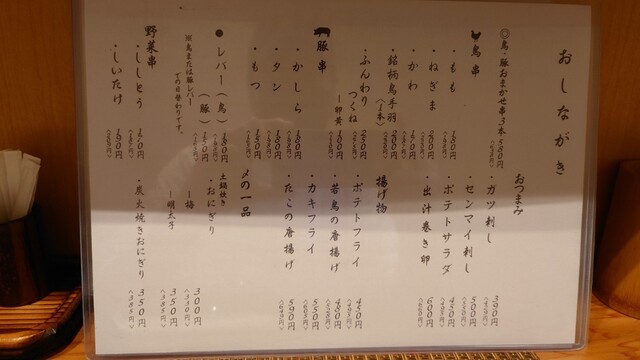 おしながき
◎鳥・豚おまかせ串3本 580円
鳥串
・もも 180円
・ねぎま 200円
・かわ
・銘柄鳥手羽〈1本〉 200円
・ふんわりつくね 250円
ー卵黄 100円
豚串
・かしら 180円
・タン
・もつ 150円
●レバー（鳥） 180円
（豚） 150円
※鳥または豚レバー
での日替わりです。
野菜串
・ししとう
・しいたけ
おつまみ
・ガツ刺し 390円
・センマイ刺し 500円
〈550円〉
・ポテトサラダ 450円
〈495円〉
・出汁巻き卵 600円
〈660円〉
揚げ物
・ポテトフライ 450円
〈495円〉
・若鳥の唐揚げ 480円
〈528円〉
・カキフライ 550円
〈605円〉
・たこの唐揚げ 590円
〈649円〉
〆の一品
土鍋焼き
・おにぎり
ー梅 300円
〈330円〉
ー明太子 350円
〈385円〉
・炭火焼きおにぎり 350円
〈385円〉